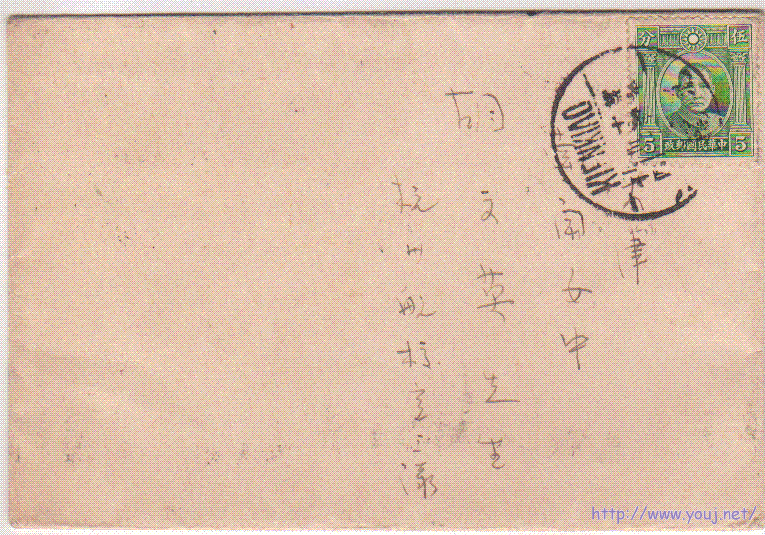 伍分
5 5
中華民國郵政
KIENKIAO
天津
南開女中
胡文英先生
杭州航校
http://www.youj.net/